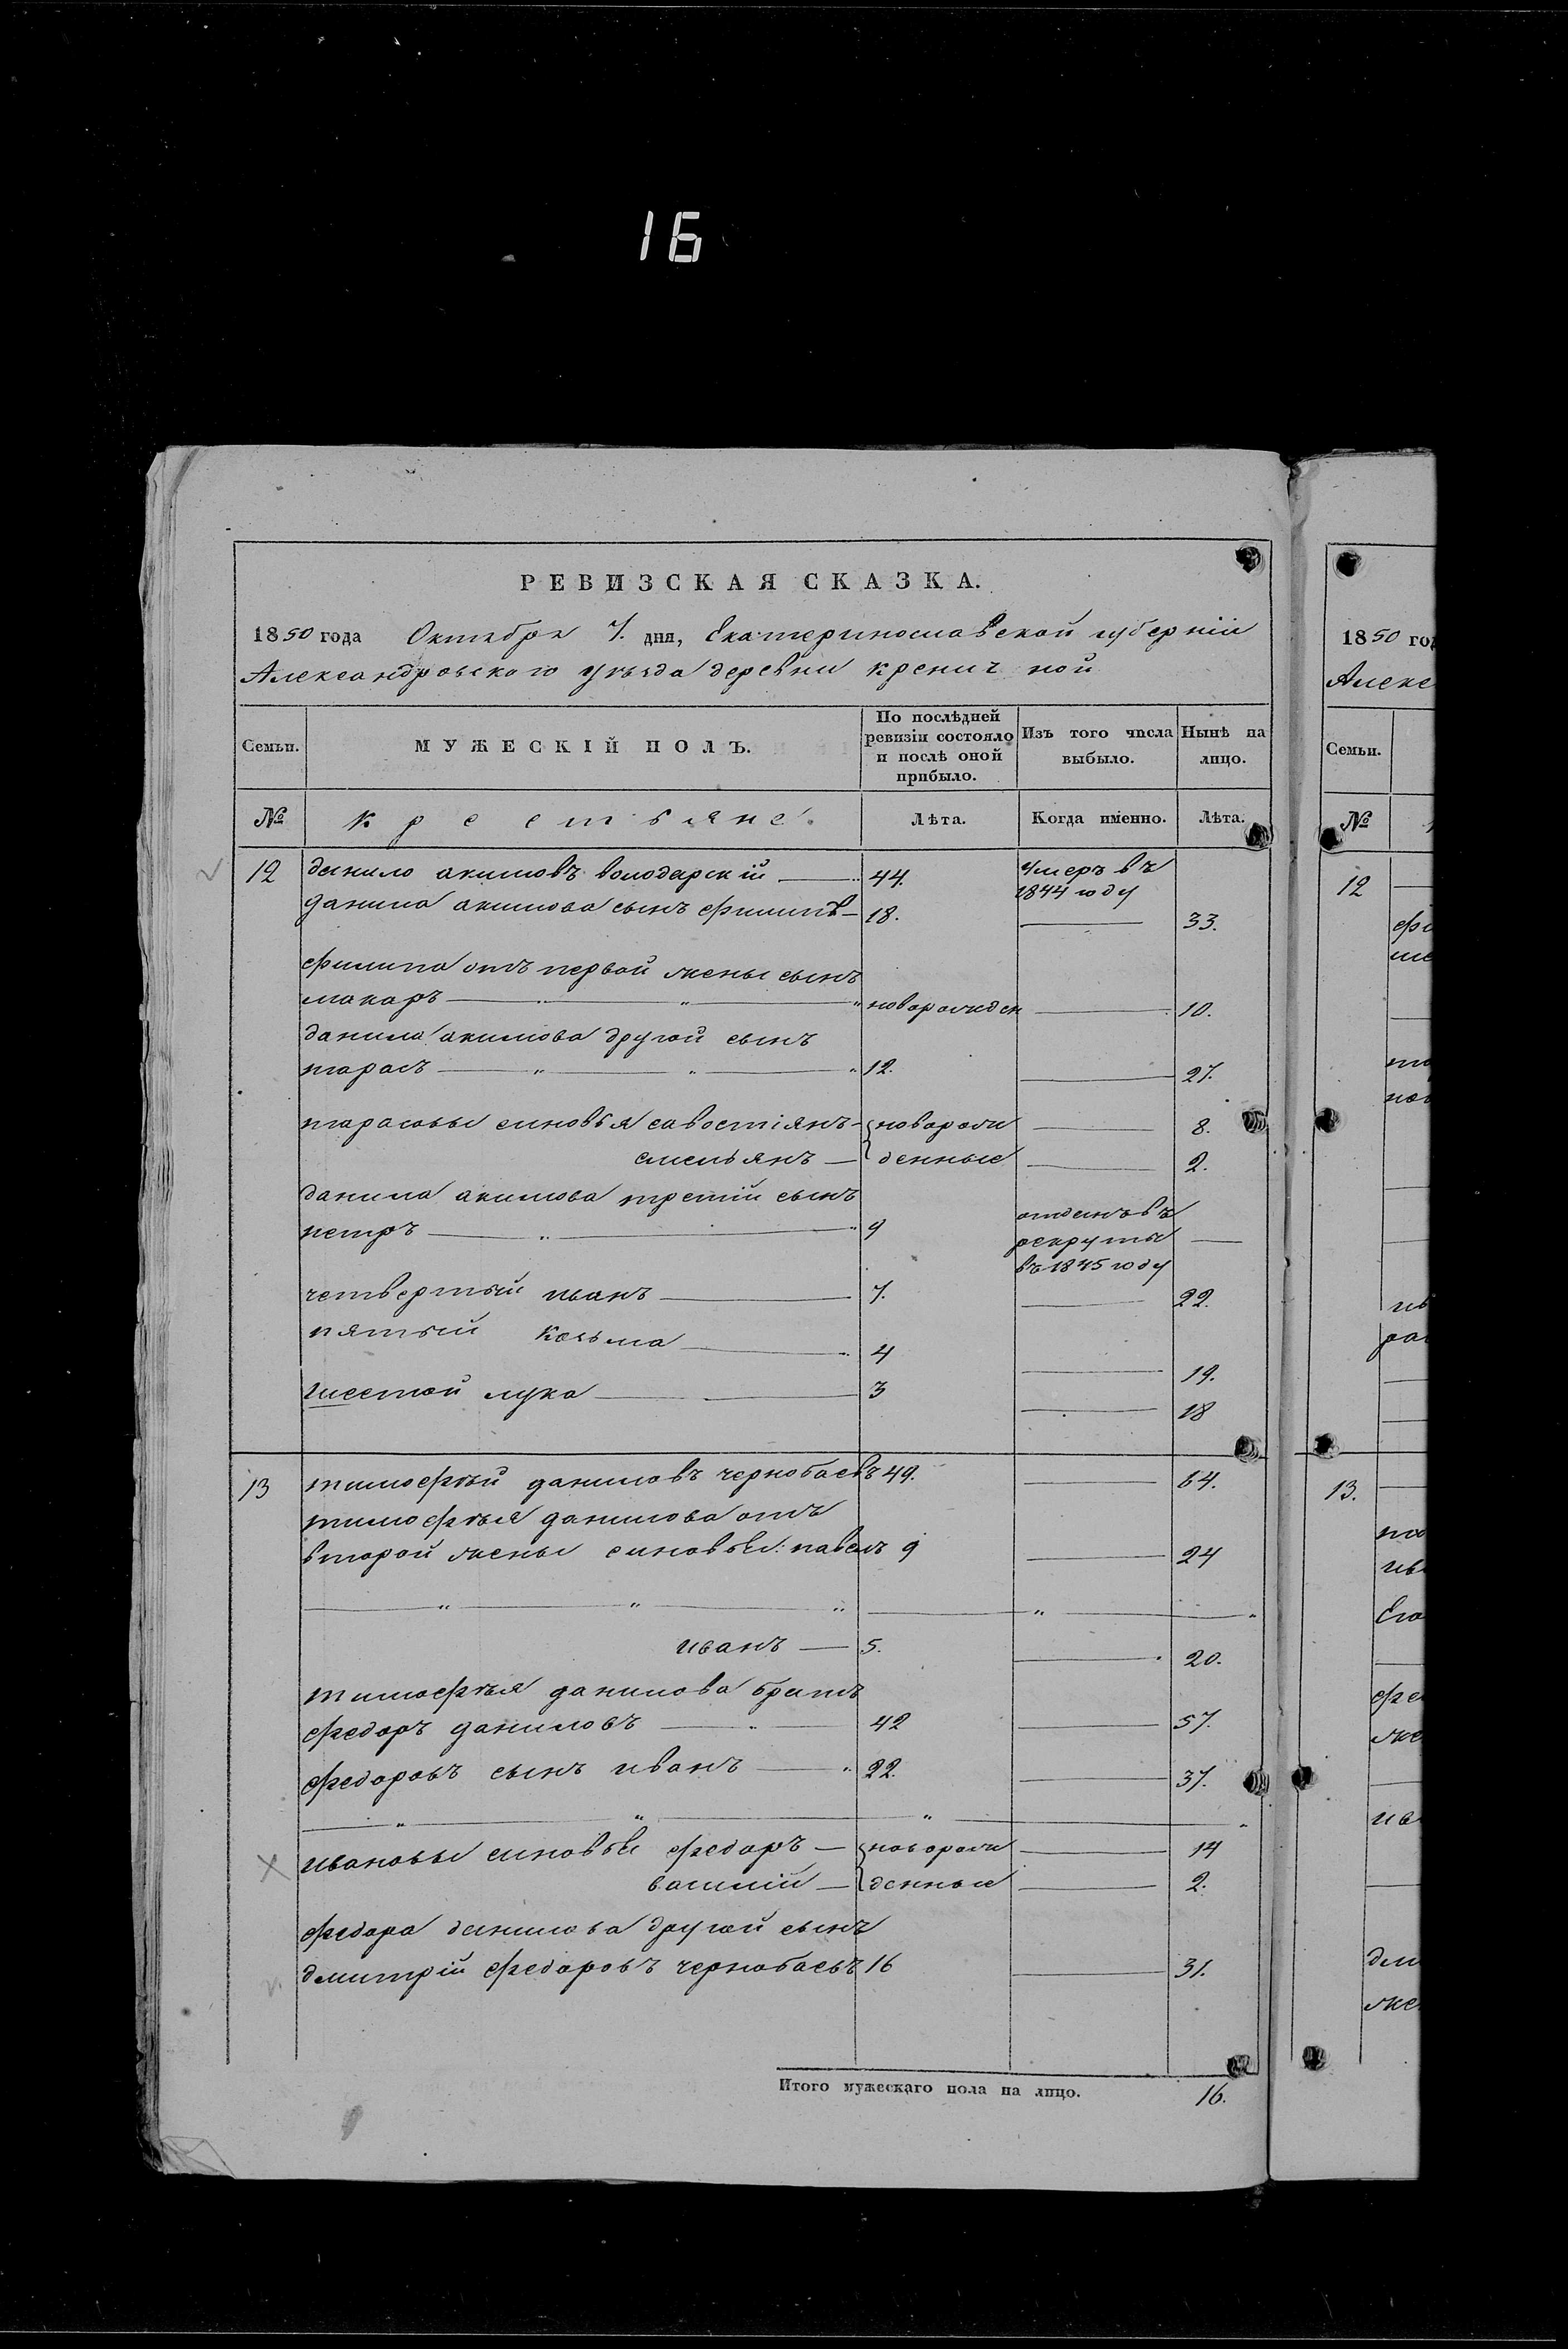 16
РЕВИЗСКАЯ СКАЗКА.
1850 года Октября 7. дня, Екатеринославской губерніи
Александровскаго уѣзда деревни кренич ной
Семьи.
МУЖЕСКІЙ ПОЛЪ.
По послѣдней ревизіи состояло и послѣ оной прибыло.
Изъ того числа выбыло.
Нынѣ на лицо.
№ крестьяне. Лѣта. Когда именно. Лѣта.
12 данило акимовъ володарскій 44. умеръ въ
1844 году
данила акимова сынъ филипъ 18. 33.
филипа отъ первой жены сынъ
макаръ новорожден 10.
данила акимова другой сынъ
тарасъ 12. 27.
тарасовы синовья савостіянъ новорож 8.
емельянъ денные 2.
данила акимова третій сынъ
петръ 9 отданъ въ
рекруты
въ 1845 году
четвертый иванъ 7. 22.
пятый козьма 4 19.
шестой лука 3 18
13 тимофѣй даниловъ чернобаевъ 49. 64.
тимофѣя данилова отъ
второй жены синовья: павелъ 9 24
иванъ 5. 20.
тимофѣя данилова братъ
федоръ даниловъ 42 57.
федоровъ сынъ иванъ 22. 37.
ивановы синовья федоръ новорож 14
василій денные 2.
федора данилова другой сынъ
дмитрій федоровъ чернобаевъ 16 31.
Итого мужескаго пола на лицо. 16.
1850 го
Алекс
Семьи.
№
12
13.